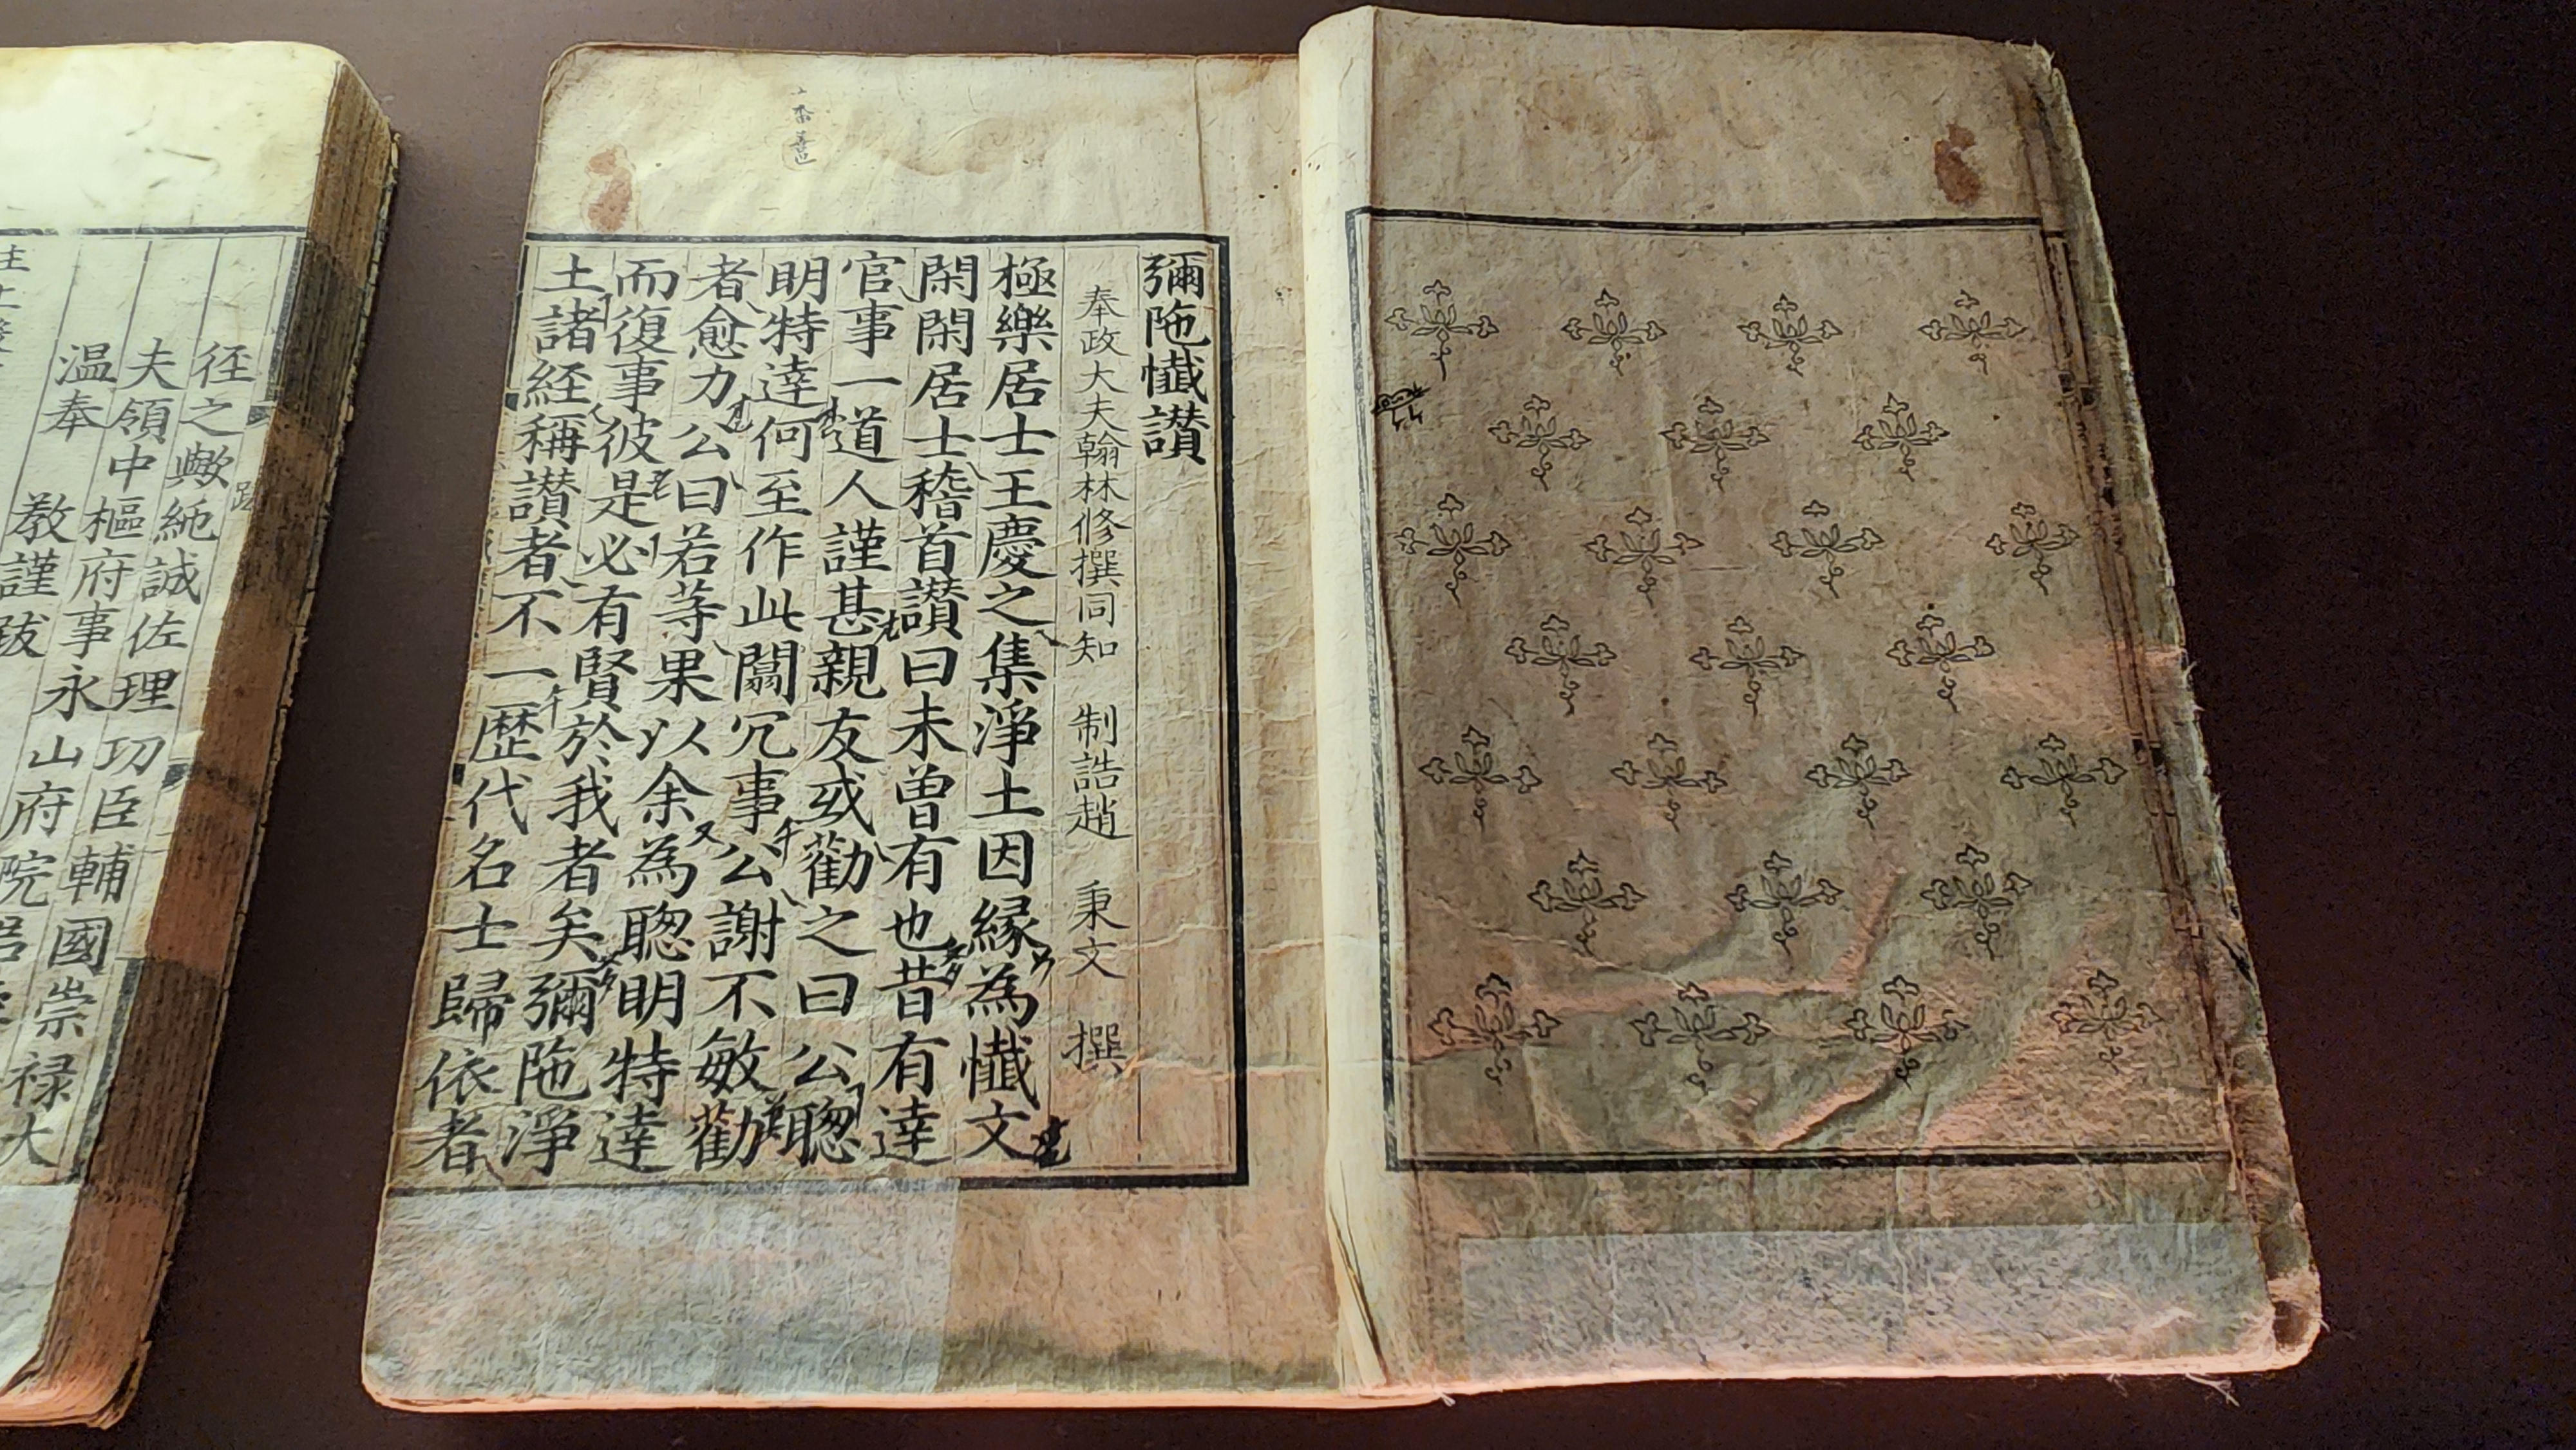 彌陁懺讃
奉政大夫翰林修撰同知 制誥趙 秉文 撰
極樂居士王慶之集淨土因縁為懺文
閑閑居士稽首讃曰未曽有也昔有達
官事一道人謹甚親友或勸之曰公聦
明特達何至作此闒冗事公謝不敏勸
者愈力公曰若等果以余為聦明特達
而復事彼是必有賢於我者矣彌陁淨
土諸経稱讃者不一歷代名士歸依者
徑之轍純誠佐理功臣輔國崇禄大
夫領中樞府事永山府院
温奉 教謹跋